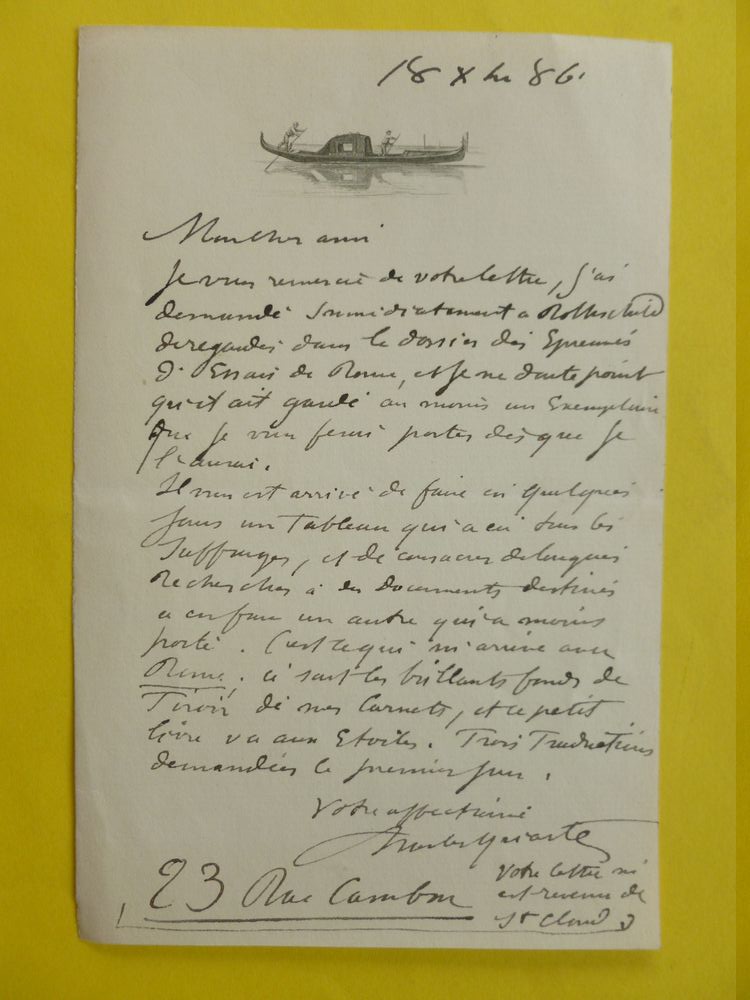 18 Xbre 86.
Mon cher ami
Je vous remercie de votre lettre, j'ai
demandé immédiatement a Rothschild
de regarder dans le dossier des Epreuves
d'Essais de Rome, et je ne doute point
qu'il ait gardé au moins un Exemplaire
que je vous ferai porter dès que je
l'aurai.
Il nous est arrivé de faire en quelques
jours un Tableau qui a eu tous les
suffrages, et de consacrer de longues
Recherches à des Documents destinés
a en faire un autre qui a moins
porté. C'est ce qui m'arrive avec
Rome, ce sont les brillants fonds de
Tiroir de mes Carnets, et ce petit
livre va aux Etoiles. Trois Traductions
demandées le premier jour.
Votre affectionné
Charles Yriarte
23 Rue Cambon
Votre lettre m'
est revenue de
St Cloud